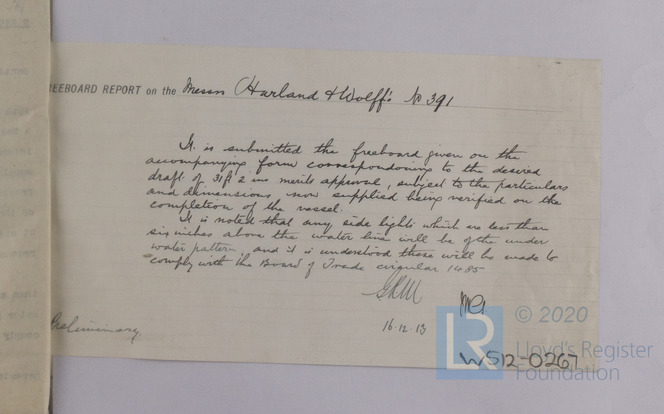 REEBOARD REPORT on the Messrs Harland & Wolff's No 391
It is submitted the freeboard given on the
accompanying form corresponding to the desired
draft of 31ft 2 ins merits approval, subject to the particulars
and dimensions now supplied being verified on the
completion of the vessel.
It is noted that any side lights which are less than
six inches above the water line will be of the under
water pattern and it is understood these will be made to
comply with the Board of Trade circular 1485
16.12.13
Preliminary
© 2020
LR
Lloyd's Register
Foundation
W512-0267